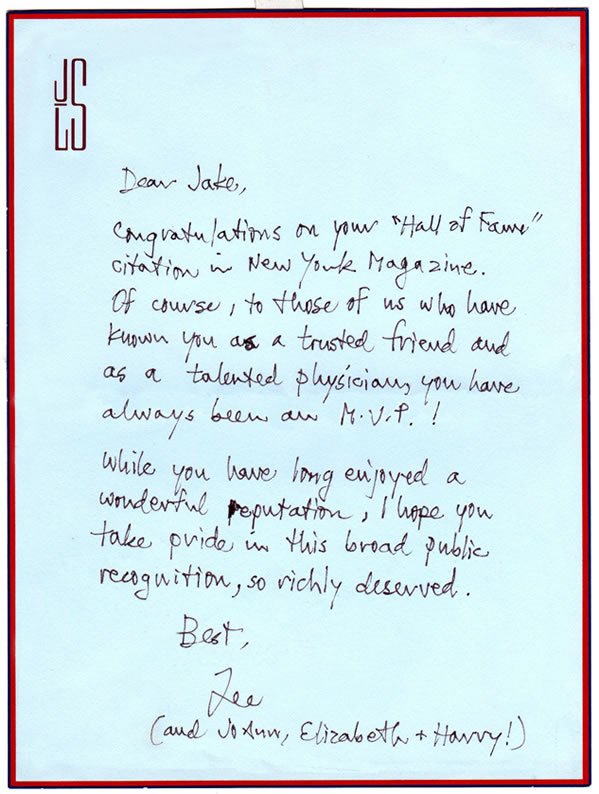 JS
LS
Dear Jake,
Congratulations on your "Hall of Fame"
citation in New York Magazine.
Of course, to those of us who have
known you as a trusted friend and
as a talented physician, you have
always been an M.V.P.!
While you have long enjoyed a
wonderful reputation, I hope you
take pride in this broad public
recognition, so richly deserved.
Best,
Lee
(and JoAnn, Elizabeth + Harry!)